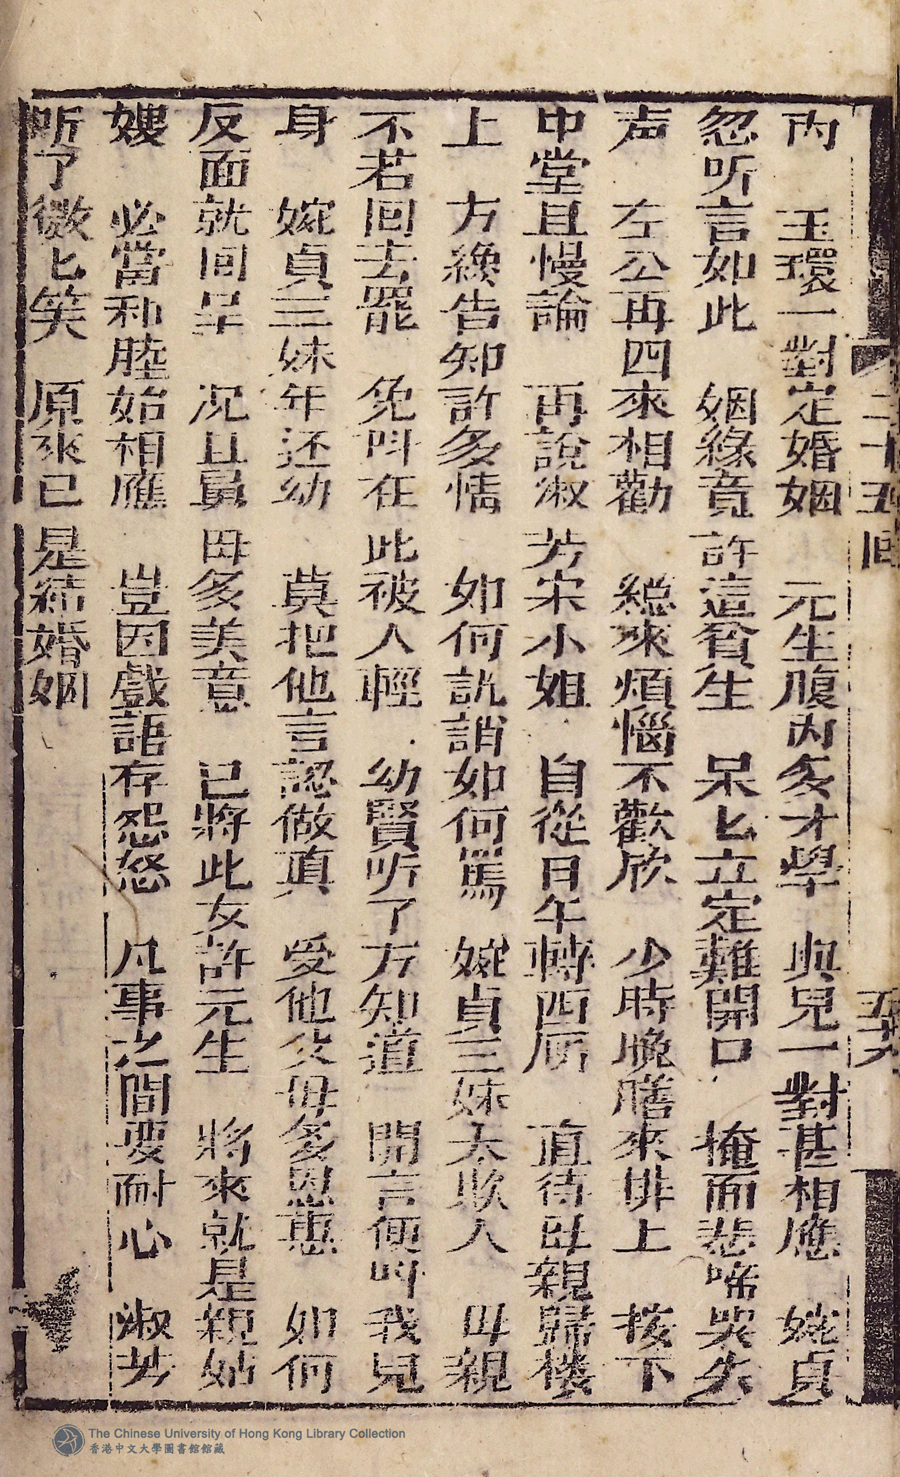 二十五囬
五十九
內 玉環一對定婚姻 元生腹內多才學 與兒一對甚相應 婉貞
忽听言如此 姻緣竟許這貧生 呆匕立定難開口 掩面悲啼哭失
声 左公再四來相勸 緫來煩惱不歡欣 少時晚膳來排上 按下
中堂且慢論 再說淑芳宋小姐 自從日午轉西厛 直待母親歸楼
上 方纔告知許多情 如何説誚如何罵 婉貞三妹太欺人 母親
不若回去罷 免呌在此被人輕 幼賢听了方知道 開言便呌我兒
身 婉貞三妹年还幼 莫把他言認做真 受他父母多恩惠 如何
反面就囬呈 况且員 母多美意 已將此女許元生 將來就是親姑
嫂 必當和睦始相應 豈因戲語存怨怒 凡事之間要耐心 淑芳
听了微匕笑 原來已是結婚姻
The Chinese University of Hong Kong Library Collection
香港中文大學圖書館館藏